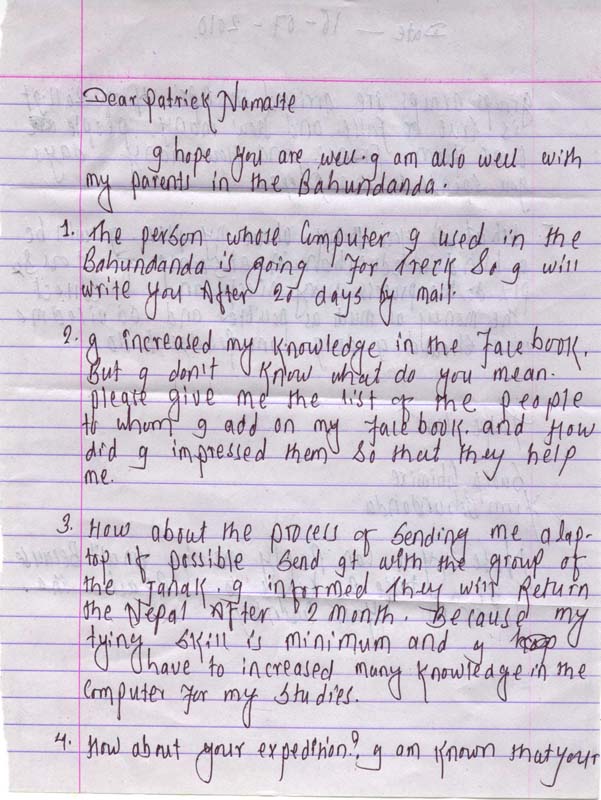 Dear Patrick Namaste
I hope you are well. I am also well with
my parents in the Bahundanda.
1. The person whose Computer I used in the
Bahundanda is going For Treck So I will
write you After 20 days by mail.
2. I increased my knowledge in the Facebook.
But I don't know what do you mean.
please give me the list of the people
to whom I add on my Facebook. and How
did I impressed them So that they help
me.
3. How about the process of Sending me a lap-
top if possible Send It with the group of
the Janak. I informed They will Return
the Nepal After 2 month. Because my
tying Skill is minimum and I
have to increased many knowledge in the
Computer For my Studies.
4. How about your expedition?, I am known that your